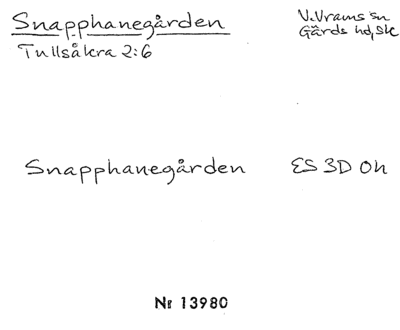 Snapphanegården
V. Vrams sn
Tullsåkra 2:6
Gärds hd, Sk
Snapphanegården ES 3D 0h
Nr 13980